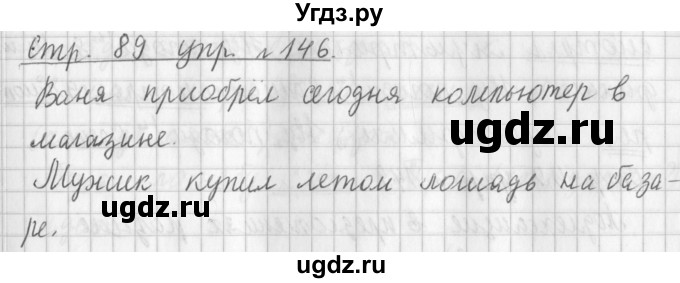 Угдз.ру
Стр. 89 упр. № 146.
Ваня приобрёл сегодня компьютер в
магазине.
ugdz.ru
Мужик купил летом лошадь на база-
ugdz.ru
ре.
ugdz.ru
ugdz.ru